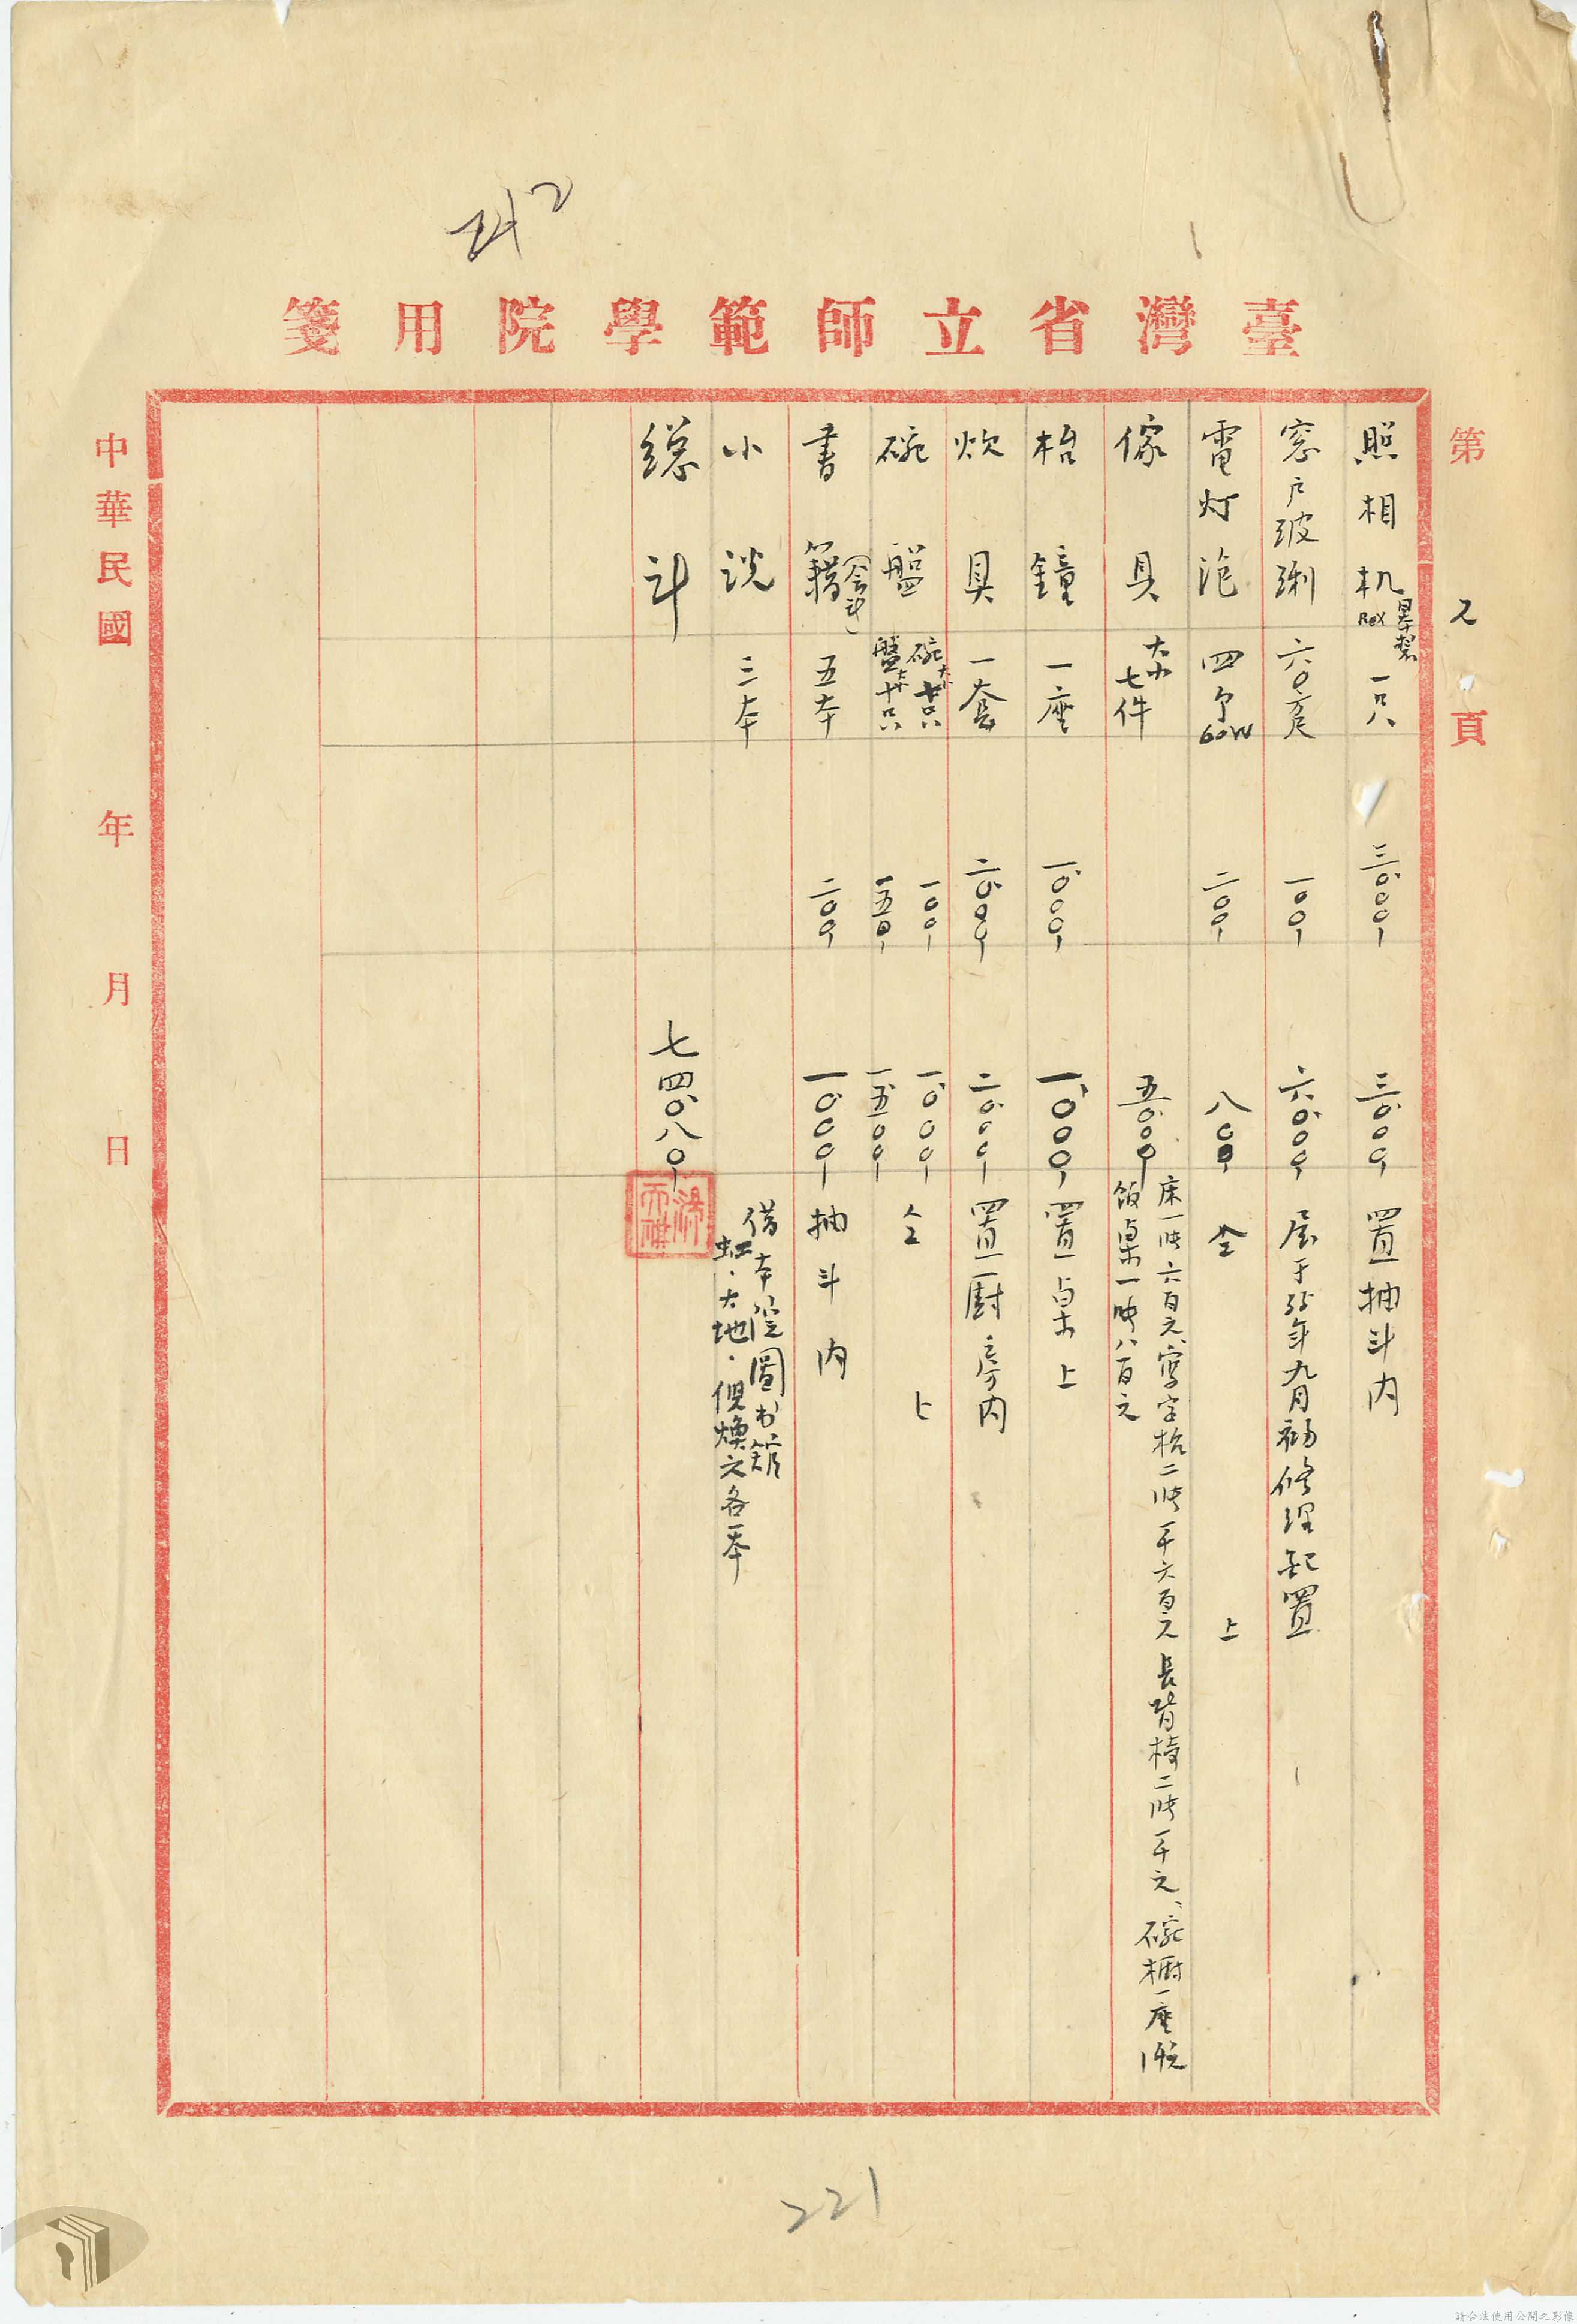 臺灣省立師範學院用箋
第 2 頁
照相机 日本製 Rex 一只 三〇〇〇 三〇〇〇 置抽斗內
窓戶玻琍 六〇方尺 一〇〇 六〇〇〇 居于卅五年九月初修理配置
電灯泡 四个 60W 二〇〇 八〇〇 仝上
傢具 大小七件 五〇〇〇 床一张六百元、寫字枱二张一千六百元 長背椅二张一千元、碗橱一座
飯桌一张八百元
枱鐘 一座 一〇〇〇 一〇〇〇 置桌上
炊具 一套 二〇〇〇 二〇〇〇 置厨房內
碗盤 碗大小十只 一〇〇 一〇〇〇 仝上
盤大小十只 一五〇 一五〇〇
書籍(会計) 五本 二〇〇 一〇〇〇 抽斗內
小說 三本 借本院圖书館
虹・大地・倪焕之各一本
總計 七四〇八〇
中華民國 年 月 日
221
請合法使用公開之影像